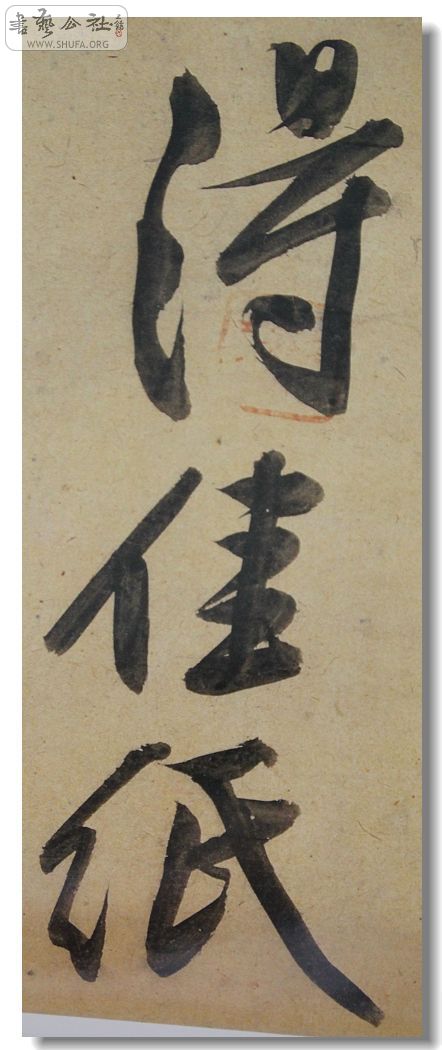 書藝公社
WWW.SHUFA.ORG
得佳纸